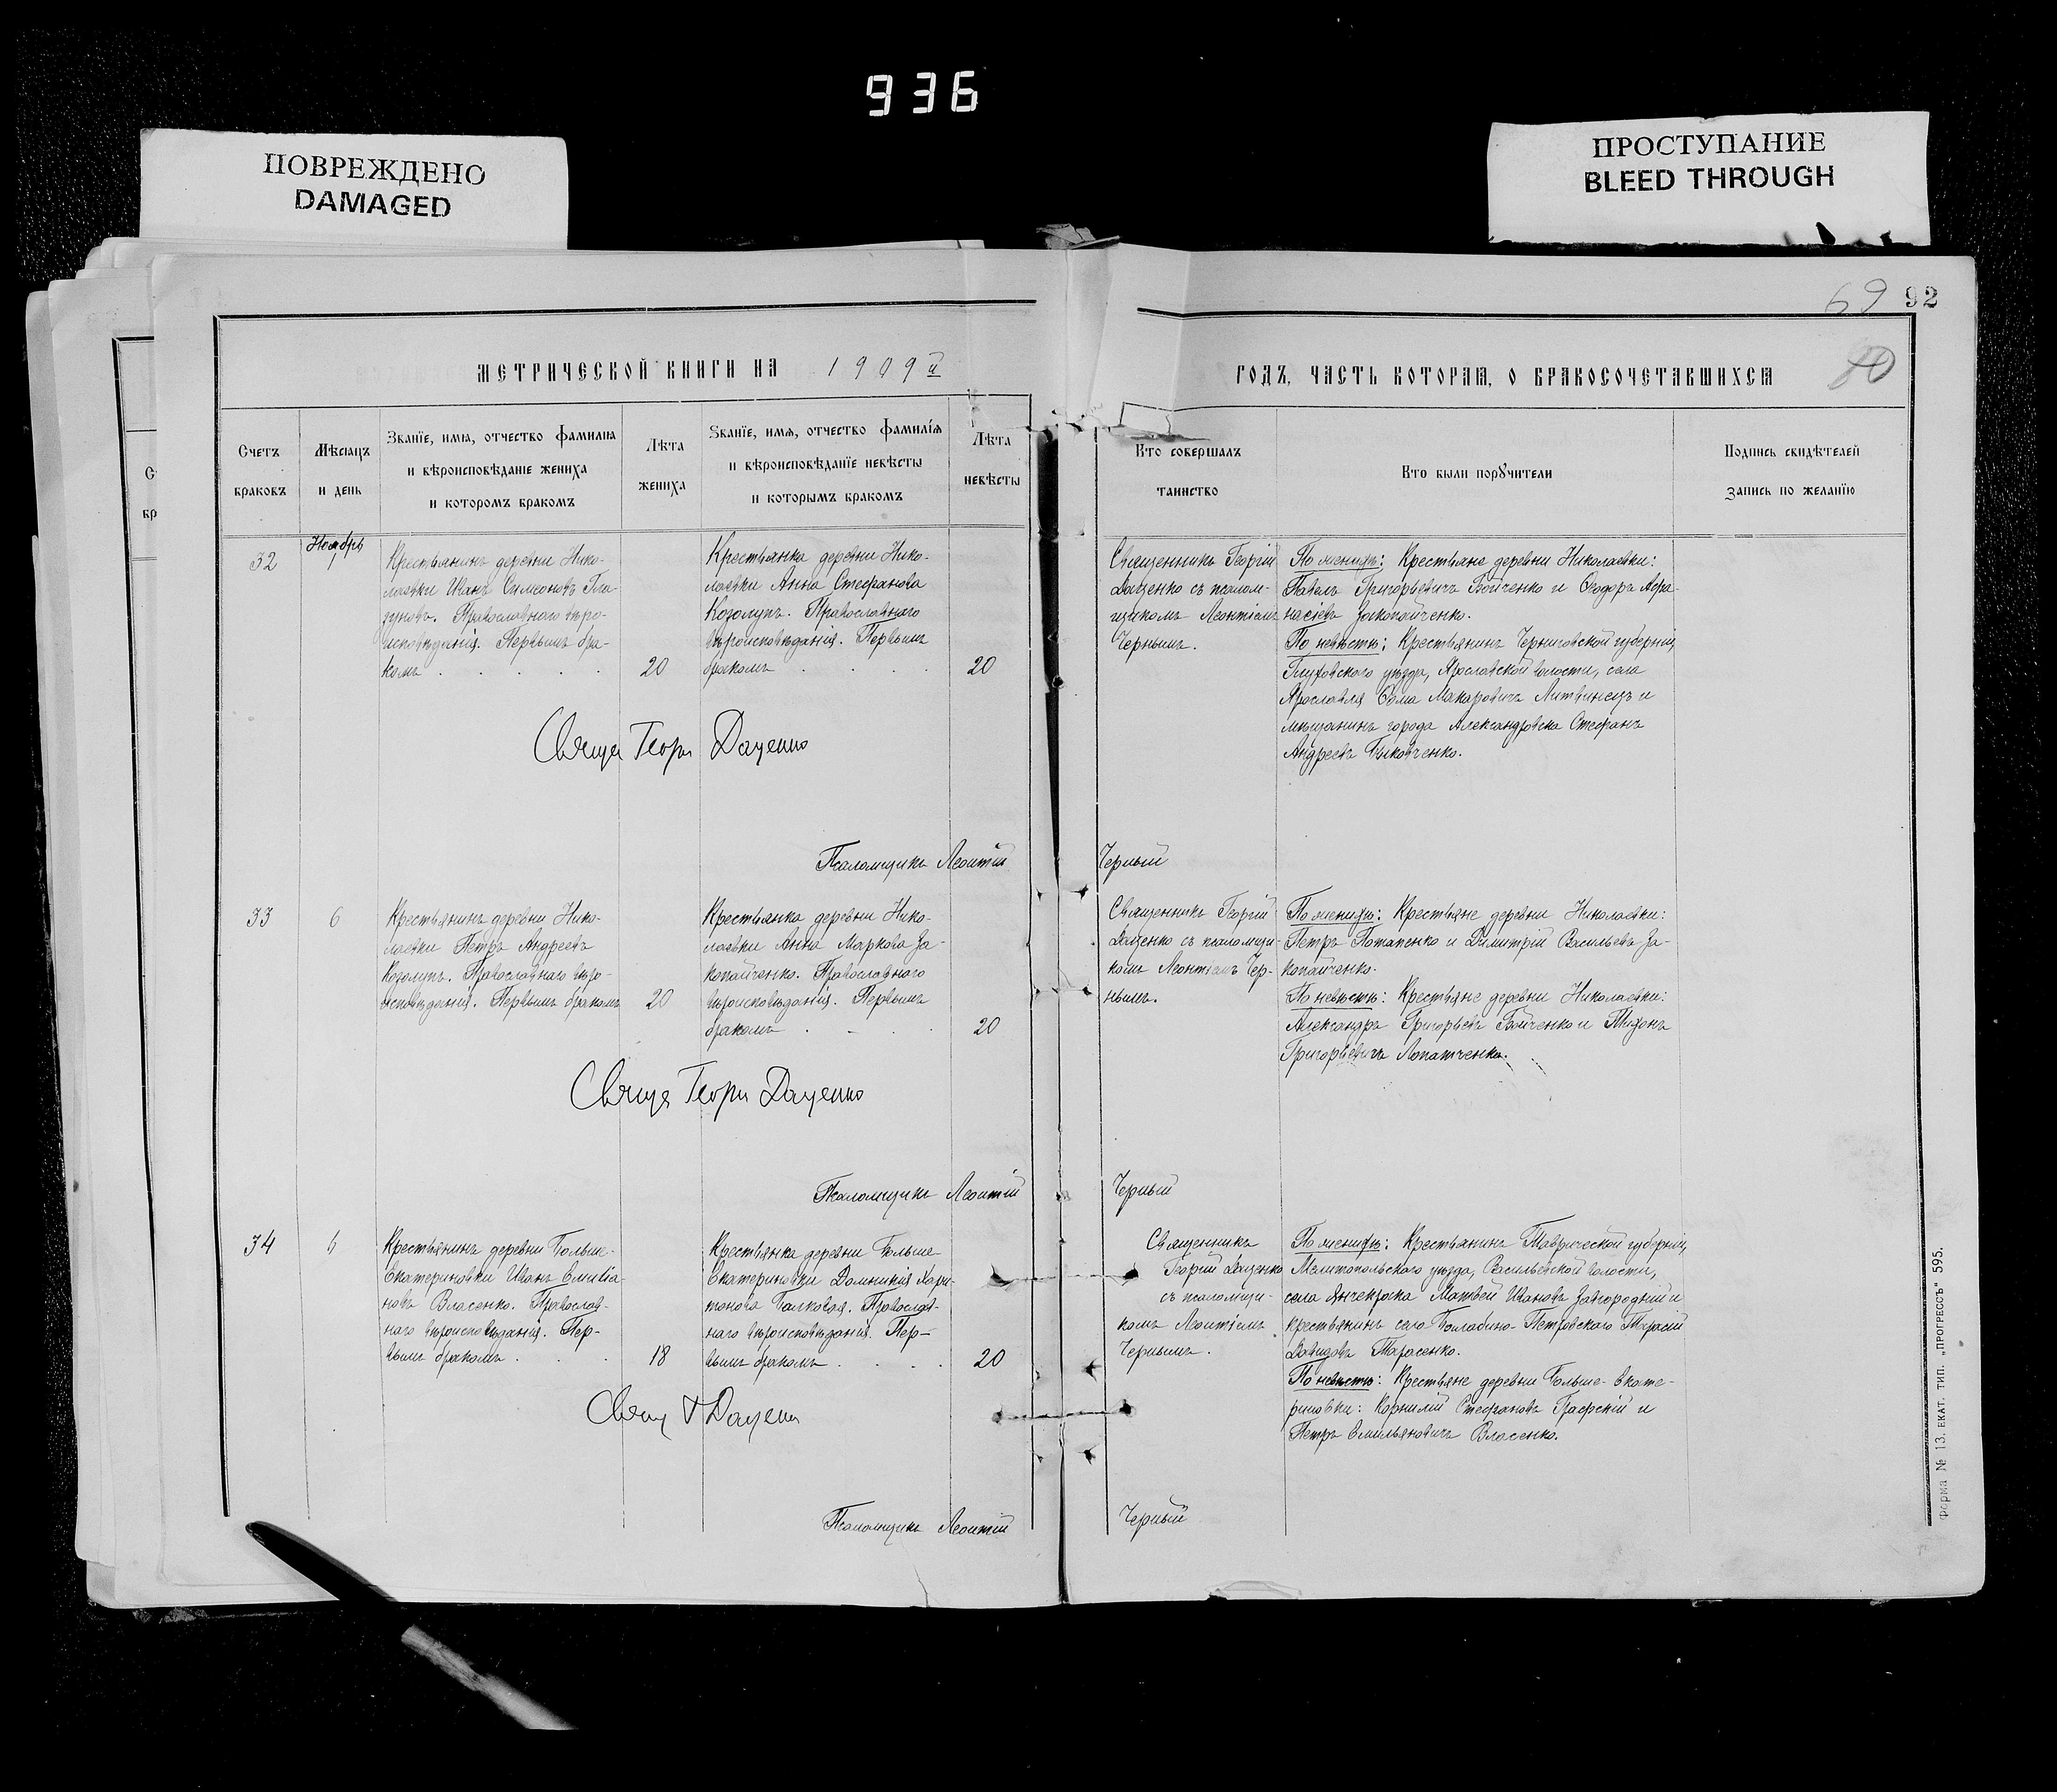 936
ПОВРЕЖДЕНО
DAMAGED
ПРОСТУПАНИЕ
BLEED THROUGH
69 92
80
МЕТРИЧЕСКОЙ КНИГИ НА 1909й
ГОДЪ, ЧАСТЬ ВТОРАЯ, О БРАКОСОЧЕТАВШИХСЯ
Счетъ
браковъ
Мѣсяцъ
и день
Званіе, имя, отчество фамилия
и вѣроисповѣданіе жениха
и которомъ бракомъ
Лѣта
жениха
Званіе, имя, отчество фамилія
и вѣроисповѣданіе невѣсты
и которымъ бракомъ
Лѣта
невѣсты
Кто совершалъ
таинство
Кто были поручители
Подпись свидѣтелей
запись по желанію
32
Ноябрь
Крестьянинъ деревни Нико-
лаевки Иванъ Симеоновъ Гла-
зуновъ. Православнаго вѣро-
исповѣданія. Первымъ бра-
комъ
20
Крестьянка деревни Нико-
лаевки Анна Стефанова
Козолупъ. Православнаго
вѣроисповѣданія. Первымъ
бракомъ
20
Священникъ Георгій
Даценко съ псалом-
щикомъ Леонтіемъ
Чернымъ.
По женихѣ: Крестьяне деревни Николаевки:
Павелъ Григорьевичъ Бойченко и Ѳеодоръ Афа-
насіевъ Закопайченко.
По невѣстѣ: Крестьянинъ Черниговской губерніи,
Глуховского уѣзда, Ярославской волости, села
Ярославля Ѳома Макаровичъ Литвинецъ и
мѣщанинъ города Александровска Стефанъ
Андреевъ Быковченко.
Свящ Георг Даценко
Псаломщикъ Леонтій Черный
33
6
Крестьянинъ деревни Нико-
лаевки Петръ Андреевъ
Козолупъ. Православнаго вѣро-
исповѣданія. Первымъ бракомъ
20
Крестьянка деревни Нико-
лаевки Анна Маркова За-
копайченко. Православнаго
вѣроисповѣданія. Первымъ
бракомъ
20
Священникъ Георгій
Даценко съ псаломщи-
комъ Леонтіемъ Чер-
нымъ.
По женихѣ: Крестьяне деревни Николаевки:
Петръ Потапенко и Димитрій Васильевъ За-
копайченко.
По невѣстѣ: Крестьяне деревни Николаевки:
Александръ Григорьевъ Бойченко и Тихонъ
Григорьевичъ Лопатченко.
Свящ Георг Даценко
Псаломщикъ Леонтій Черный
34
6
Крестьянинъ деревни Больше-
Екатериновки Иванъ Емиліа-
новъ Власенко. Православ-
наго вѣроисповѣданія. Пер-
вымъ бракомъ
18
Крестьянка деревни Больше
Екатериновки Домникія Хари-
тонова Балковая. Православ-
наго вѣроисповѣданія. Пер-
вымъ бракомъ
20
Священникъ
Георгій Даценко
съ псаломщи-
комъ Леонтіемъ
Чернымъ.
По женихѣ: Крестьянинъ Таврической губерніи,
Мелитопольскаго уѣзда, Васильевской волости,
села Янчекрака Матвей Ивановъ Завгородній и
крестьянинъ села Балабино-Петровскаго Тарасій
Давидовъ Тарасенко.
По невѣстѣ: Крестьяне деревни Больше-Екате-
риновки: Корнилій Стефановъ Графскій и
Петръ Емильяновичъ Власенко.
Свящ Г Даценк
Псаломщикъ Леонтій Черный
Форма № 13. ЕКАТ. ТИП. „ПРОГРЕССЪ" 595.